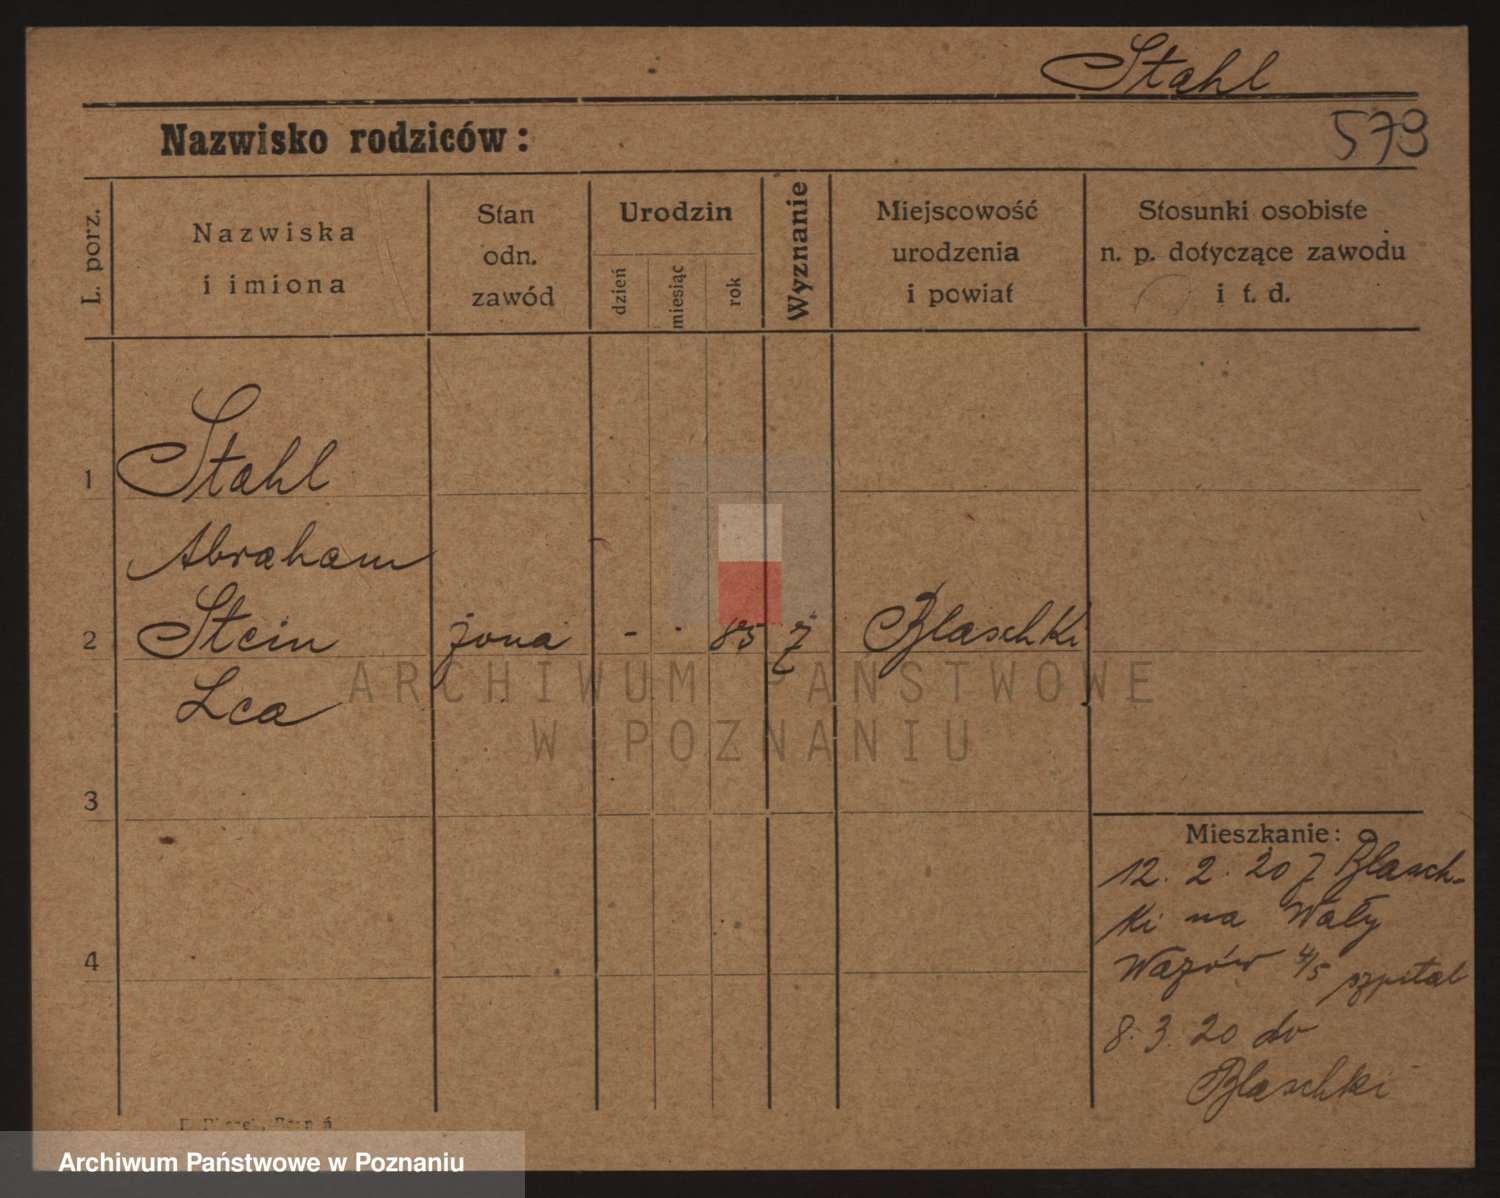 Stahl
Nazwisko rodziców:
579
L. porz.
Nazwiska
i imiona
Stan
odn.
zawód
Urodzin
dzień
miesiąc
rok
Wyznanie
Miejscowość
urodzenia
i powiat
Stosunki osobiste
n. p. dotyczące zawodu
i t. d.
1 Stahl
Abraham
2 Stein żona - - 85 ż Blaschki
Lea
ARCHIWUM PAŃSTWOWE
W POZNANIU
3
Mieszkanie:
12. 2. 20 z Blasch-
ki na Wały
4
Wazów 4/5 szpital
8. 3. 20 do
Blaschki
Archiwum Państwowe w Poznaniu